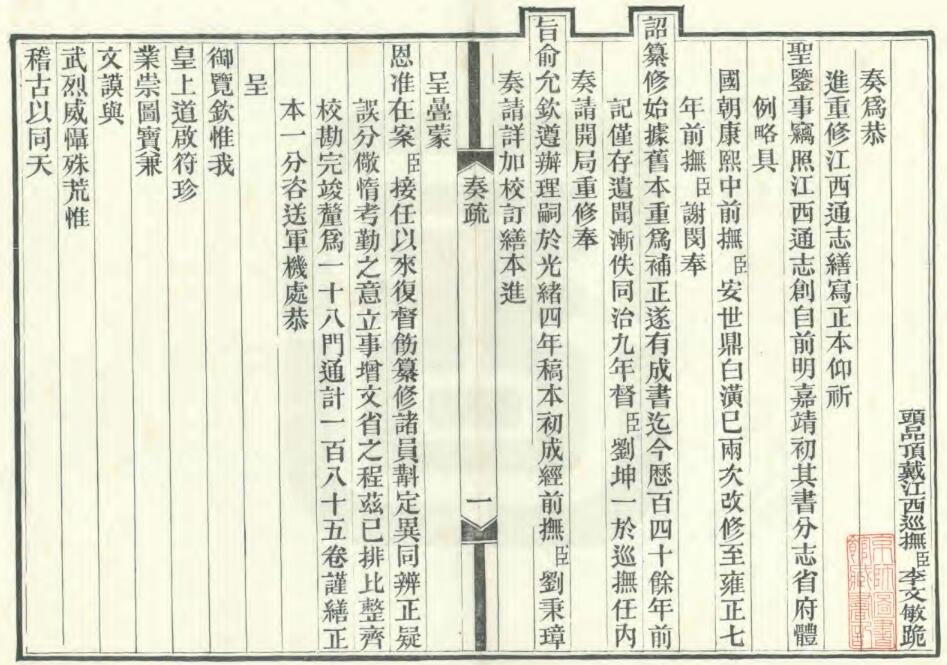 頭品頂戴江西巡撫臣李文敏跪
奏爲恭
進重修江西通志繕寫正本仰祈
聖鑒事竊照江西通志創自前明嘉靖初其書分志省府體
例略具
國朝康熙中前撫臣安世鼎白潢已兩次改修至雍正七
年前撫臣謝閔奉
詔纂修始據舊本重爲補正遂有成書迄今歷百四十餘年前
記僅存遺聞漸佚同治九年督臣劉坤一於巡撫任內
奏請開局重修奉
旨俞允欽遵辦理嗣於光緒四年稿本初成經前撫臣劉秉璋
奏請詳加校訂繕本進
奏疏
一
呈曡蒙
恩准在案臣接任以來復督飭纂修諸員斠定異同辨正疑
誤分儆惰考勤之意立事增文省之程茲已排比整齊
校勘完竣釐爲一十八門通計一百八十五卷謹繕正
本一分咨送軍機處恭
呈
御覽欽惟我
皇上道啟符珍
業崇圖寶兼
文謨與
武烈威懾殊荒惟
稽古以同天
京師圖書
館藏書印